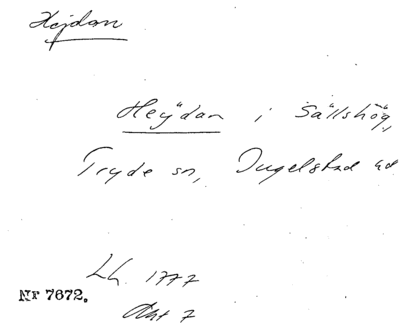 Hejdan
Heÿdan i Sällshög,
Tryde sn, Ingelstad hd
Lh. 1777
Nr 7672.
Akt 7